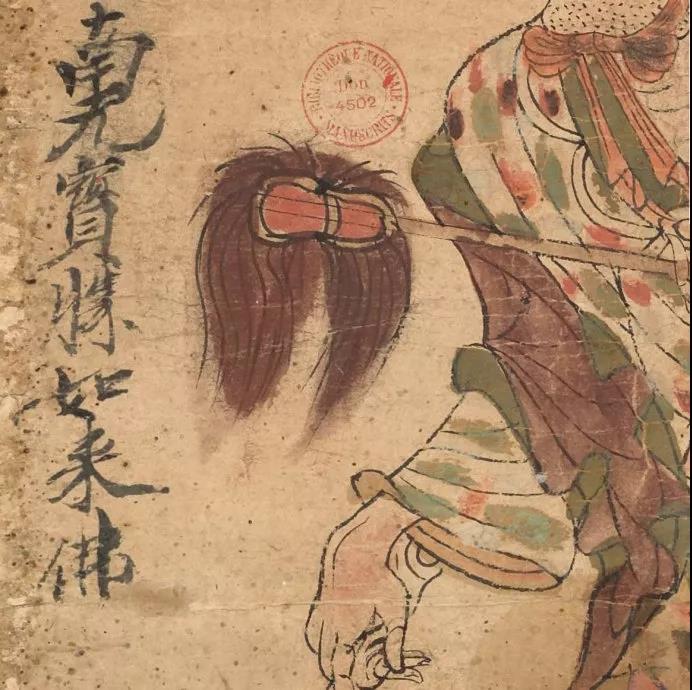 南无寶勝如来佛
BIBLIOTHÈQUE NATIONALE
Don
4502
MANUSCRITS